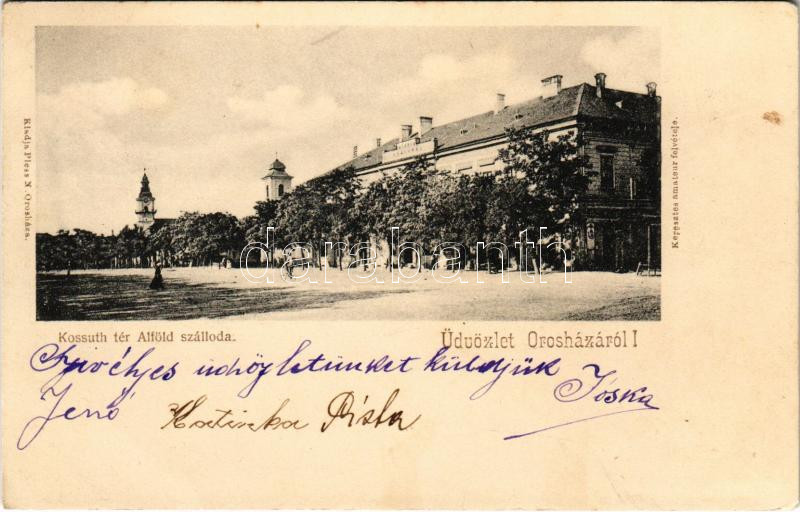 Kiadja Pless N. Orosháza.
Keresztes amateur felvétele.
darabanth
Kossuth tér Alföld szálloda.
Üdvözlet Orosházáról!
Szivélyes üdvözletünket küldjük
Jenő
Katinka Pista
Jóska